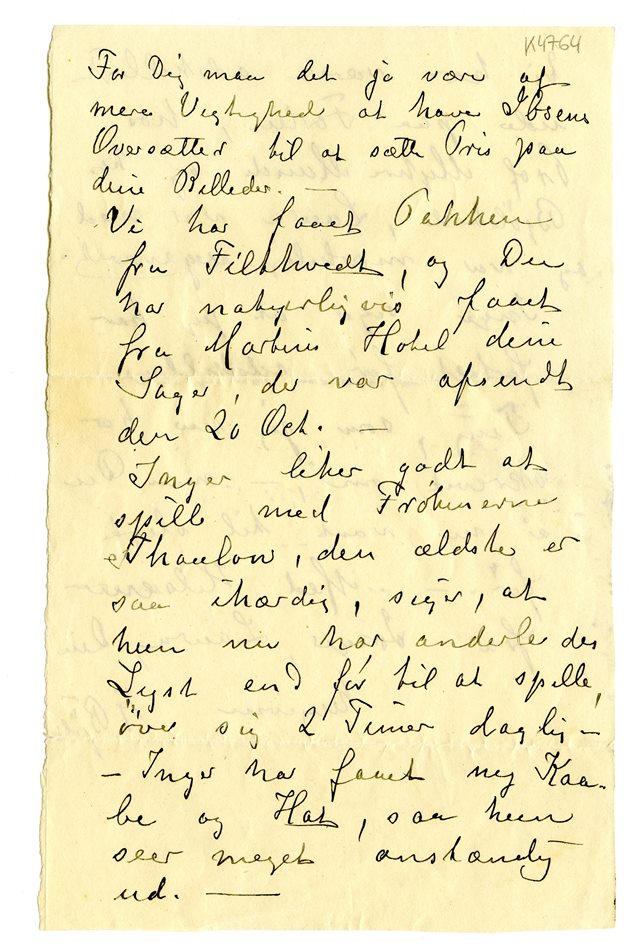 K4764
For Dig maa det jo være af
mere Vigtighed at have Ibsens
Oversætter til at sætte Pris paa
dine Billeder. —
Vi har faaet Pakken
fra Filtkvedt, og Du
har naturligvis faaet
fra Martins Hotel dine
Sager, der var afsendt
den 20 Oct. —
Inger liker godt at
spille med Frøknerne
Thaulow, den ældste er
saa ihærdig, siger, at
hun nu har anderledes
Lyst end før til at spille,
øver sig 2 Timer daglig —
— Inger har faaet ny Kaa-
be og Hat, saa hun
seer meget anstændig
ud. —